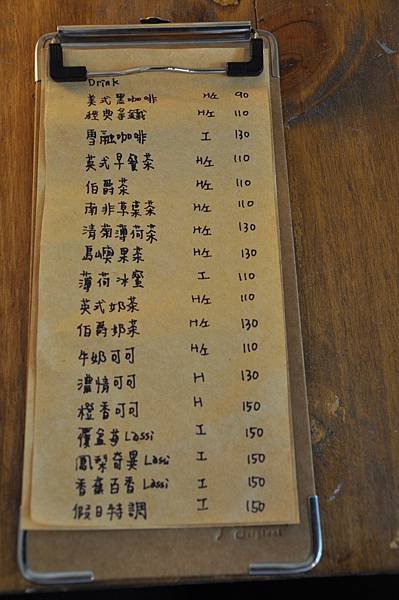 Drink
美式黑咖啡 H/I 90
經典拿鐵 H/I 110
雪融咖啡 I 130
英式早餐茶 H/I 110
伯爵茶 H/I 110
南非草葉茶 H/I 110
清菊薄荷茶 H/I 130
島嶼果茶 H/I 130
薄荷冰蜜 I 110
英式奶茶 H/I 110
伯爵奶茶 H/I 130
牛奶可可 H/I 110
濃情可可 H 130
橙香可可 H 150
覆盆莓Lassi I 150
鳳梨奇異Lassi I 150
香蕉百香Lassi I 150
假日特調 I 150